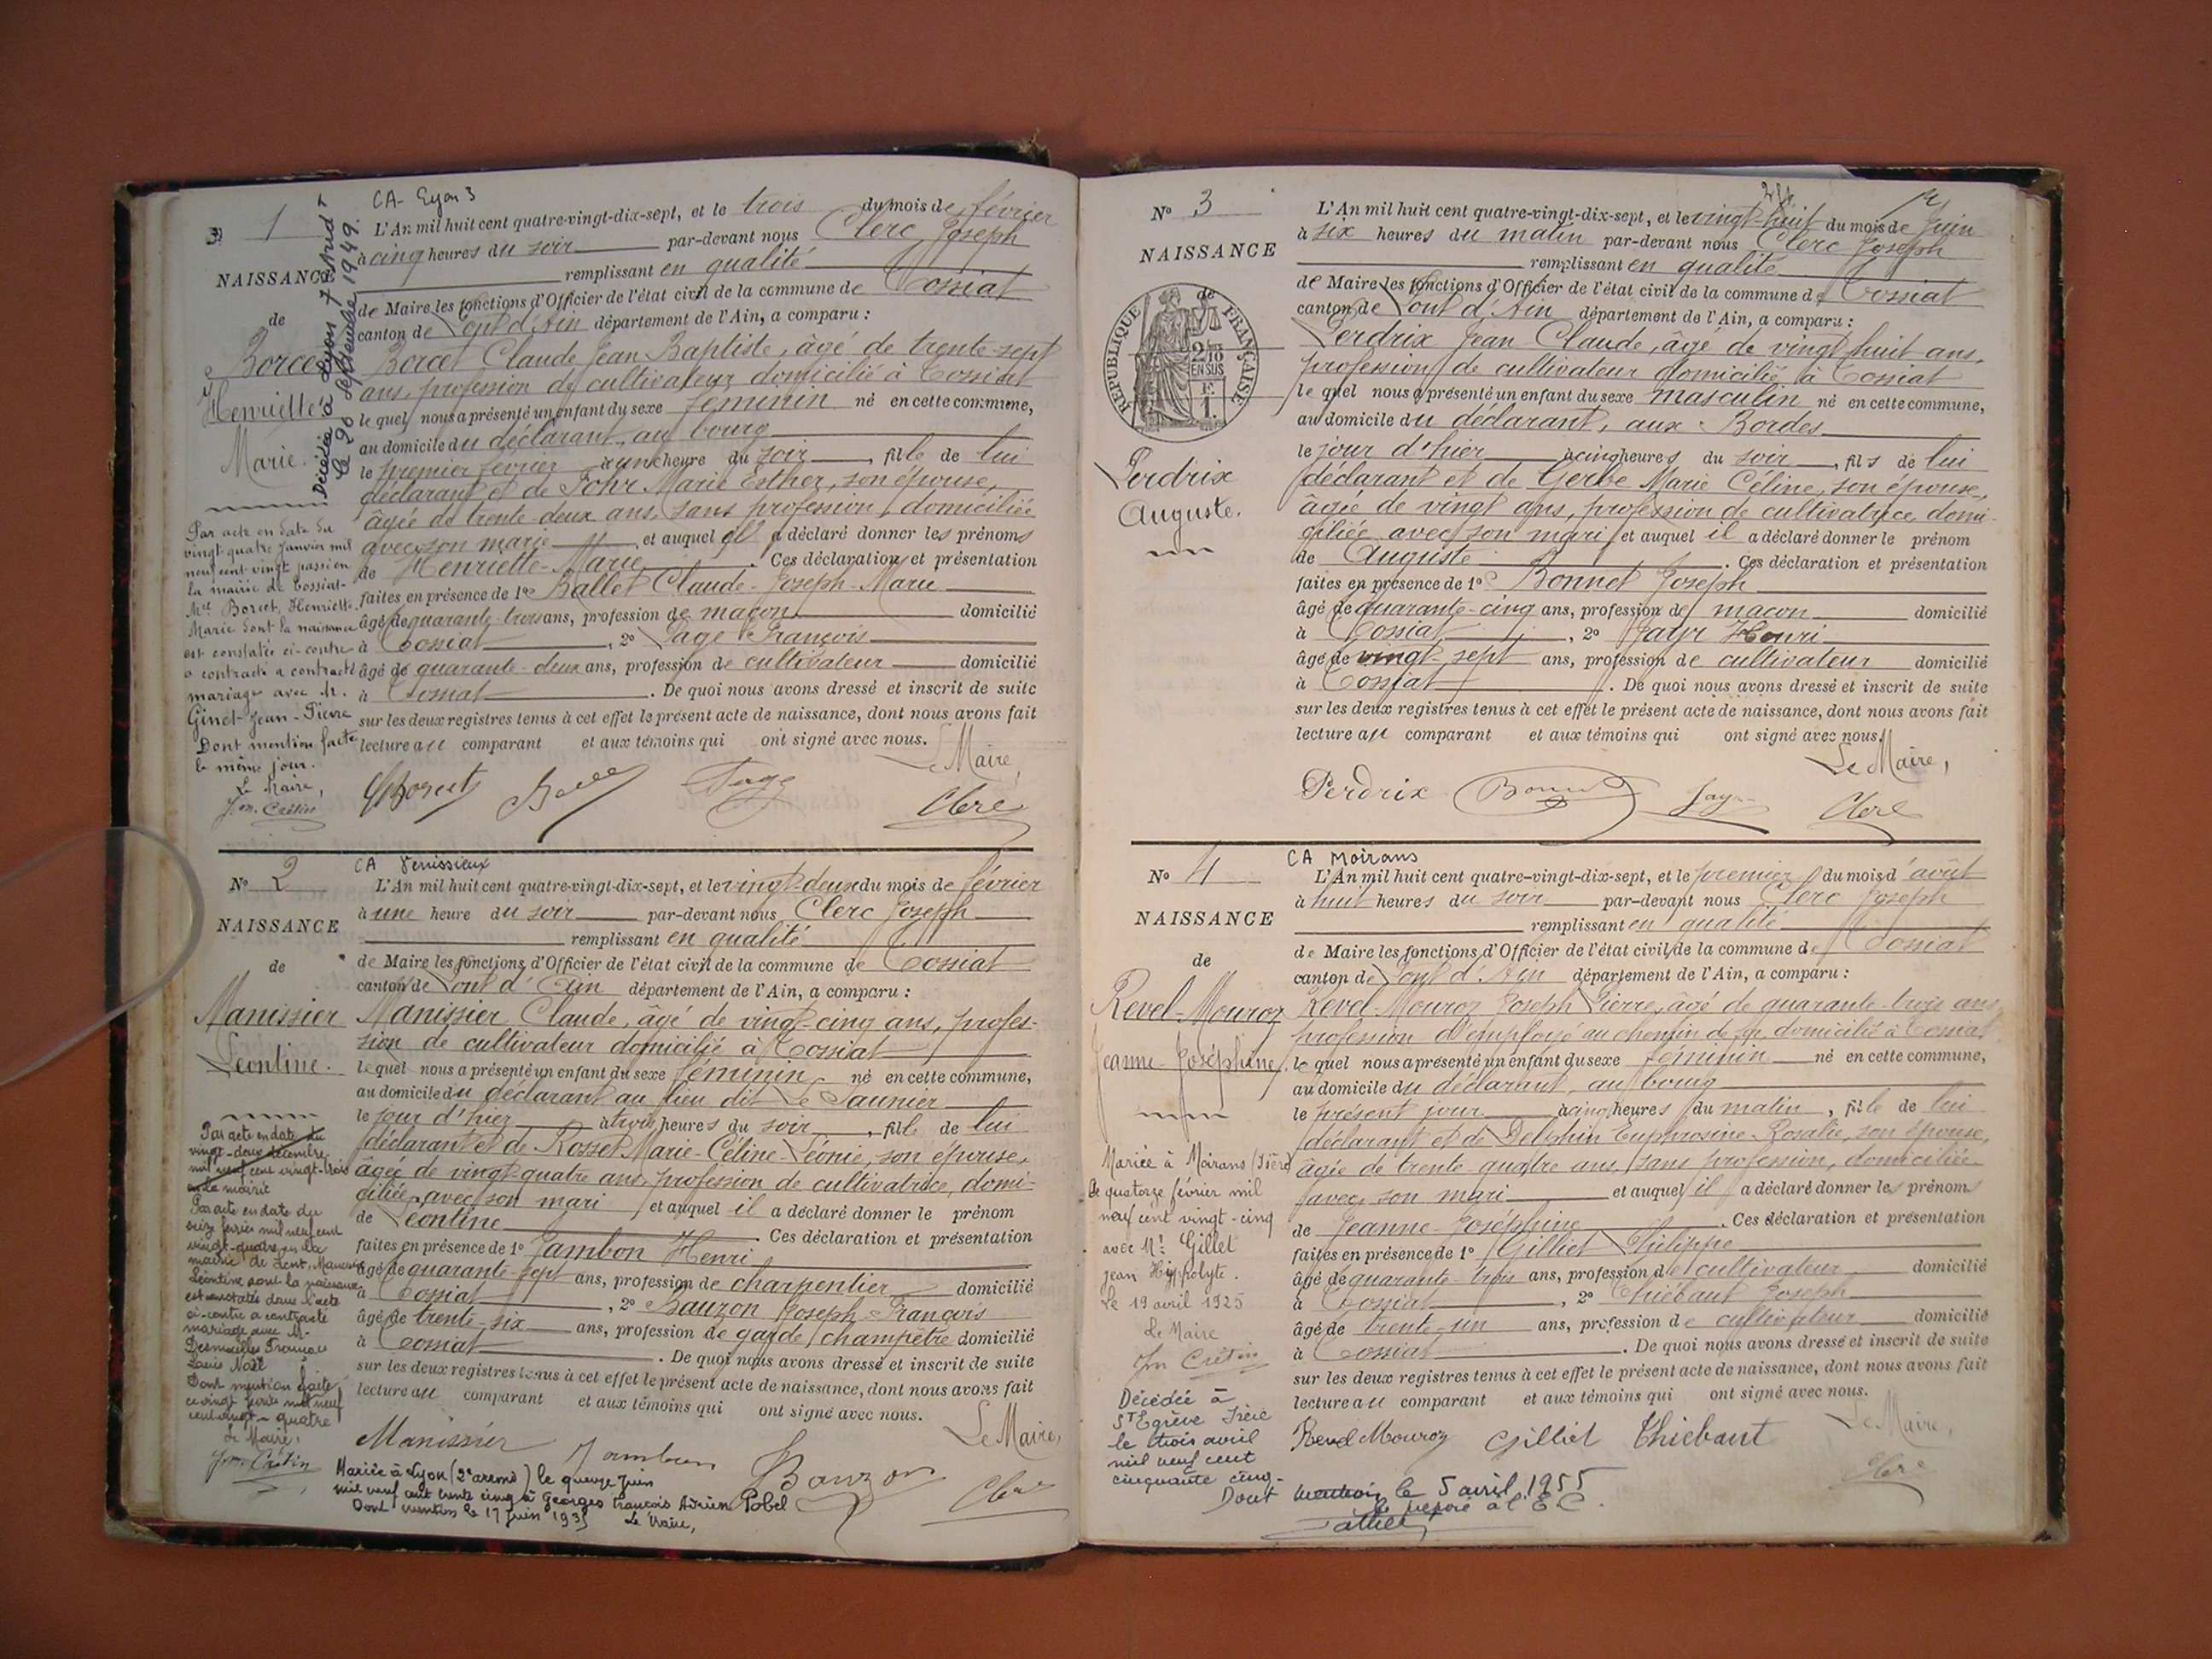 CA - Lyon 3
N° 1
L'An mil huit cent quatre-vingt-dix-sept, et le trois du mois de février
à cinq heures du soir par-devant nous Clerc Joseph
NAISSANCE
remplissant en qualité
de Maire les fonctions d'Officier de l'état civil de la commune de Tossiat
de
canton de Pont d'Ain département de l'Ain, a comparu :
Borcet
Henriette
Marie.
Borcet Claude Jean Baptiste, âgé de trente-sept
ans, profession de cultivateur domicilié à Tossiat
lequel nous a présenté un enfant du sexe féminin né en cette commune,
au domicile du déclarant, au bourg
le premier février à une heure du soir, fille de lui
déclarant et de Fohr Marie Esther, son épouse,
âgée de trente-deux ans, sans profession, domiciliée
avec son marie et auquel il a déclaré donner les prénoms
de Henriette-Marie. Ces déclaration et présentation
faites en présence de 1° Ballet Claude-Joseph-Marie
âgé de quarante-trois ans, profession de maçon domicilié
à Tossiat, 2° Page François
âgé de quarante-deux ans, profession de cultivateur domicilié
à Tossiat. De quoi nous avons dressé et inscrit de suite
sur les deux registres tenus à cet effet le présent acte de naissance, dont nous avons fait
lecture au comparant et aux témoins qui ont signé avec nous.
Le Maire,
Borcet Page Clerc
Décédée à Lyon 7 Arrdt
le 20 septembre 1949.
Par acte en date du
vingt-quatre janvier mil
neuf cent vingt passé en
la mairie de Tossiat
Mlle Borcet, Henriette
Marie dont la naissance
est constatée ci-contre
a contracté a contracté
mariage avec M.
Ginet Jean-Pierre
Dont mention faite
le même jour.
Le Maire,
Jm. Crétin
CA Venissieux
N° 2
L'An mil huit cent quatre-vingt-dix-sept, et le vingt-deux du mois de février
à une heure du soir par-devant nous Clerc Joseph
NAISSANCE
remplissant en qualité
de
de Maire les fonctions d'Officier de l'état civil de la commune de Tossiat
canton de Pont d'Ain département de l'Ain, a comparu :
Manissier
Léontine.
Manissier Claude, âgé de vingt-cinq ans, profes-
sion de cultivateur domicilié à Tossiat
lequel nous a présenté un enfant du sexe féminin né en cette commune,
au domicile du déclarant au lieu dit Le Saunier
le jour d'hier à trois heures du soir, fille de lui
déclarant et de Rosset Marie-Céline-Léonie, son épouse,
âgée de vingt-quatre ans, profession de cultivatrice, domi-
ciliée avec son mari et auquel il a déclaré donner le prénom
de Léontine. Ces déclaration et présentation
faites en présence de 1° Jambon Henri
âgé de quarante-sept ans, profession de charpentier domicilié
à Tossiat, 2° Bauzon Joseph-François
âgé de trente-six ans, profession de garde champêtre domicilié
à Tossiat. De quoi nous avons dressé et inscrit de suite
sur les deux registres tenus à cet effet le présent acte de naissance, dont nous avons fait
lecture au comparant et aux témoins qui ont signé avec nous.
Le Maire,
Manissier Jambon Bauzon Clerc
Par acte en date du
vingt-deux décembre
mil neuf cent vingt-trois
en la mairie
Par acte en date du
seize février mil neuf cent
vingt-quatre en la
mairie de Lent, Manissier
Léontine dont la naissance
est constatée dans l'acte
ci-contre a contracté
mariage avec M.
François
Louis Noël
Dont mention faite
ce vingt février mil neuf
cent vingt-quatre
Le Maire,
Jm. Crétin
Mariée à Lyon (2e arrond) le quinze juin
mil neuf cent trente cinq à Georges François Adrien Pobel
Dont mention le 17 juin 1935 Le Maire,
N° 3
L'An mil huit cent quatre-vingt-dix-sept, et le vingt-huit du mois de Juin
à six heures du matin par-devant nous Clerc Joseph
NAISSANCE
remplissant en qualité
de
de Maire les fonctions d'Officier de l'état civil de la commune de Tossiat
canton de Pont d'Ain département de l'Ain, a comparu :
RÉPUBLIQUE FRANÇAISE
2/10
EN SUS
F.
1.
Perdrix
Auguste.
Perdrix Jean Claude, âgé de vingt-huit ans,
profession de cultivateur domicilié à Tossiat
lequel nous a présenté un enfant du sexe masculin né en cette commune,
au domicile du déclarant, aux Bordes
le jour d'hier à cinq heures du soir, fils de lui
déclarant et de Gerbe Marie Céline, son épouse,
âgée de vingt ans, profession de cultivatrice, domi-
ciliée avec son mari et auquel il a déclaré donner le prénom
de Auguste. Ces déclaration et présentation
faites en présence de 1° Bonnet Joseph
âgé de quarante-cinq ans, profession de maçon domicilié
à Tossiat, 2° Jayr Henri
âgé de vingt-sept ans, profession de cultivateur domicilié
à Tossiat. De quoi nous avons dressé et inscrit de suite
sur les deux registres tenus à cet effet le présent acte de naissance, dont nous avons fait
lecture au comparant et aux témoins qui ont signé avec nous.
Le Maire,
Perdrix Bonnet Jayr Clerc
CA Moirans
N° 4
L'An mil huit cent quatre-vingt-dix-sept, et le premier du mois d'août
à huit heures du soir par-devant nous Clerc Joseph
NAISSANCE
remplissant en qualité
de
de Maire les fonctions d'Officier de l'état civil de la commune de Tossiat
canton de Pont d'Ain département de l'Ain, a comparu :
Revel-Mouroz
Jeanne-Joséphine.
Revel-Mouroz Joseph Pierre, âgé de quarante-trois ans
profession d'employé au chemin de fer, domicilié à Tossiat
lequel nous a présenté un enfant du sexe féminin né en cette commune,
au domicile du déclarant, au bourg
le présent jour à cinq heures du matin, fille de lui
déclarant et de Delphin Euphrosine-Rosalie, son épouse,
âgée de trente-quatre ans, sans profession, domiciliée
avec son mari et auquel il a déclaré donner les prénoms
de Jeanne-Joséphine. Ces déclaration et présentation
faites en présence de 1° Gilliet Philippe
âgé de quarante-trois ans, profession de cultivateur domicilié
à Tossiat, 2° Thiébaut Joseph
âgé de trente-un ans, profession de cultivateur domicilié
à Tossiat. De quoi nous avons dressé et inscrit de suite
sur les deux registres tenus à cet effet le présent acte de naissance, dont nous avons fait
lecture au comparant et aux témoins qui ont signé avec nous.
Le Maire,
Revel Mouroz Gilliet Thiebaut Clerc
Mariée à Moirans (Isère)
le quatorze février mil
neuf cent vingt-cinq
avec Mr. Gillet
Jean Hippolyte.
Le 19 avril 1925
Le Maire
Jm Crétin
Décédée à
St Egrève Isère
le trois avril
mil neuf cent
cinquante cinq-
Dont mention le 5 avril 1955
le préposé à l'E.C.